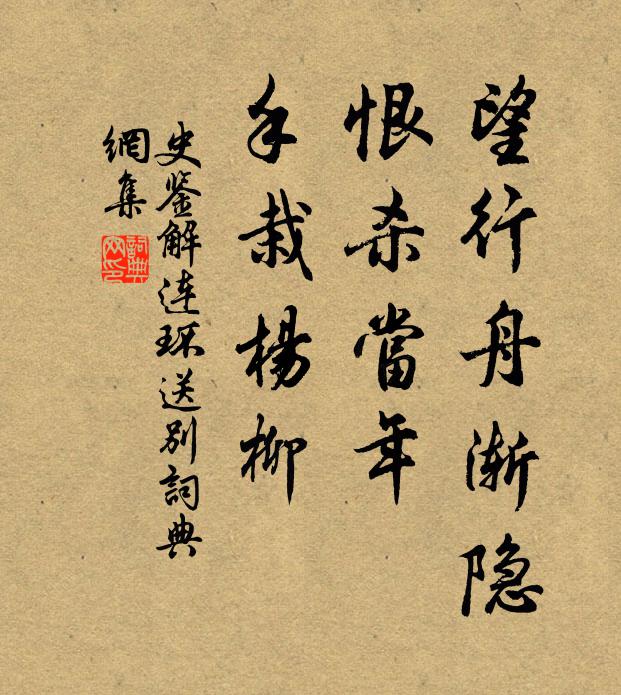 望行舟渐隐
恨杀當年
手栽楊柳
史鉴解连环送别詞典
網集
詞典
网印